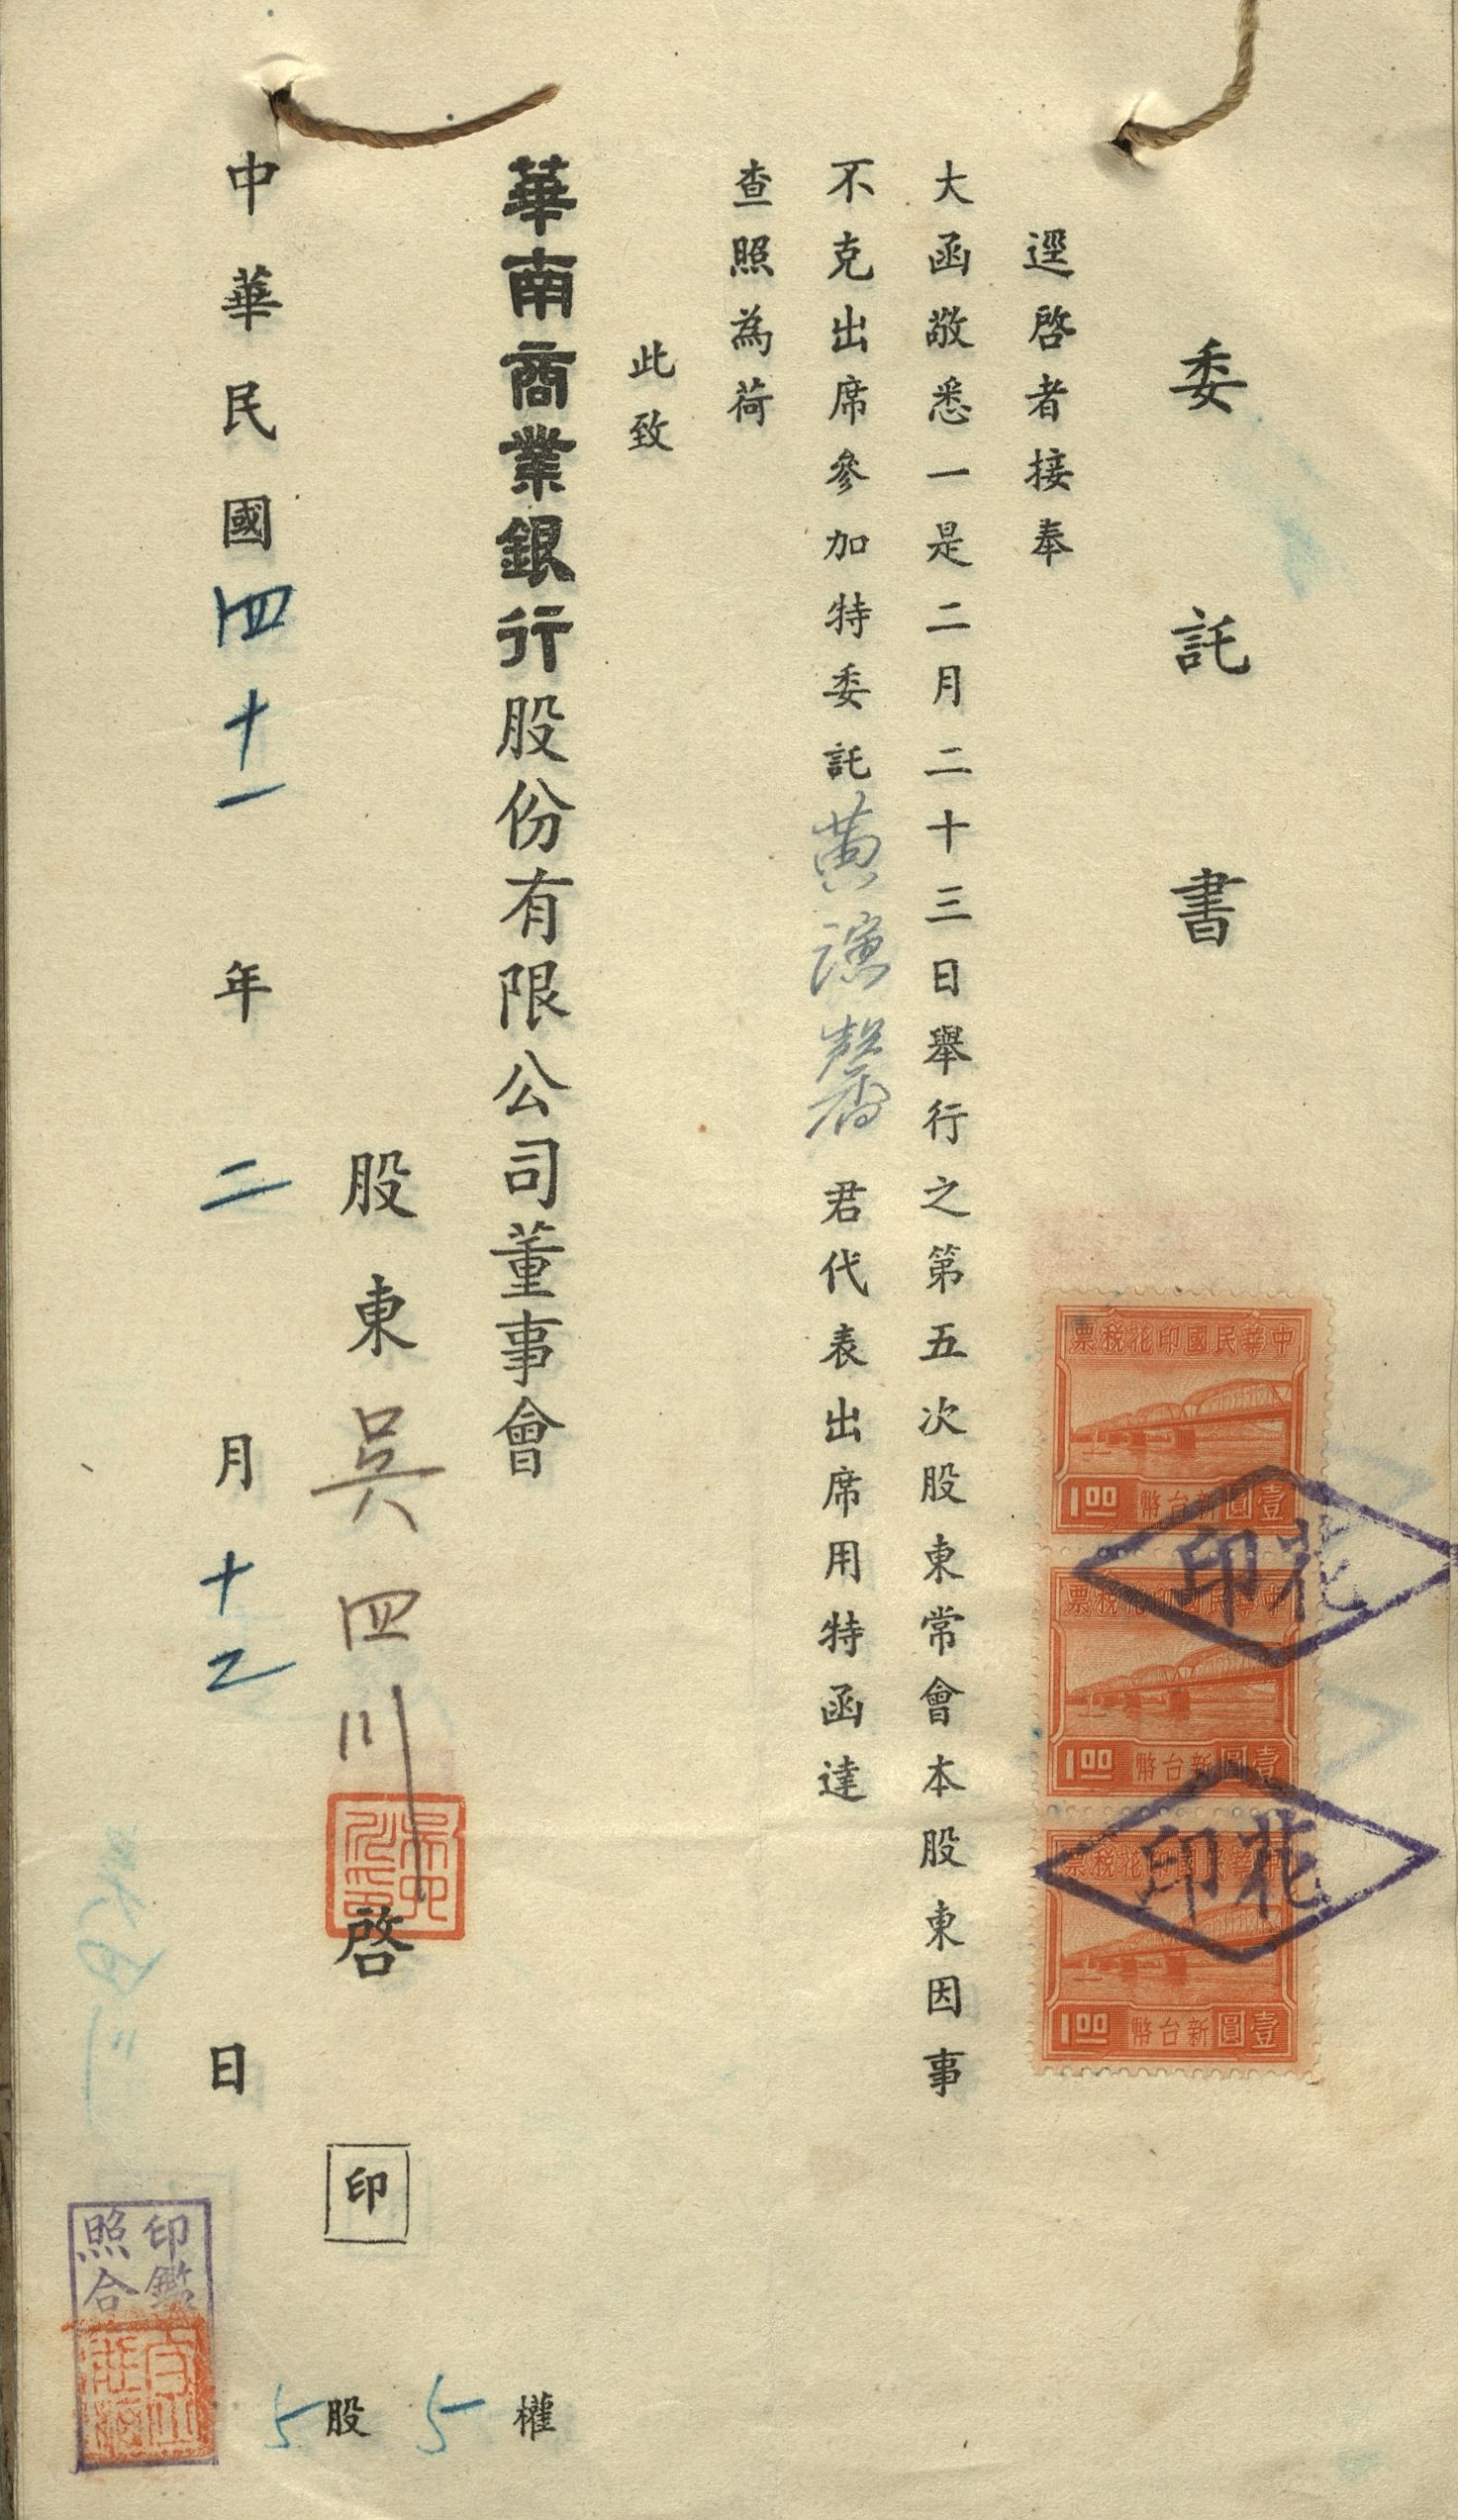 委託書
逕啓者接奉
大函敬悉一是二月二十三日舉行之第五次股東常會本股東因事
不克出席參加特委託黃演馨君代表出席用特函達
查照為荷
此致
華南商業銀行股份有限公司董事會
股東吳四川啓
印
中華民國四十一年二月十二日
5股5權
中華民國印花稅票
壹圓新台幣
1.00
中華民國印花稅票
壹圓新台幣
1.00
中華民國印花稅票
壹圓新台幣
1.00
花印
花印
印鑑
照合